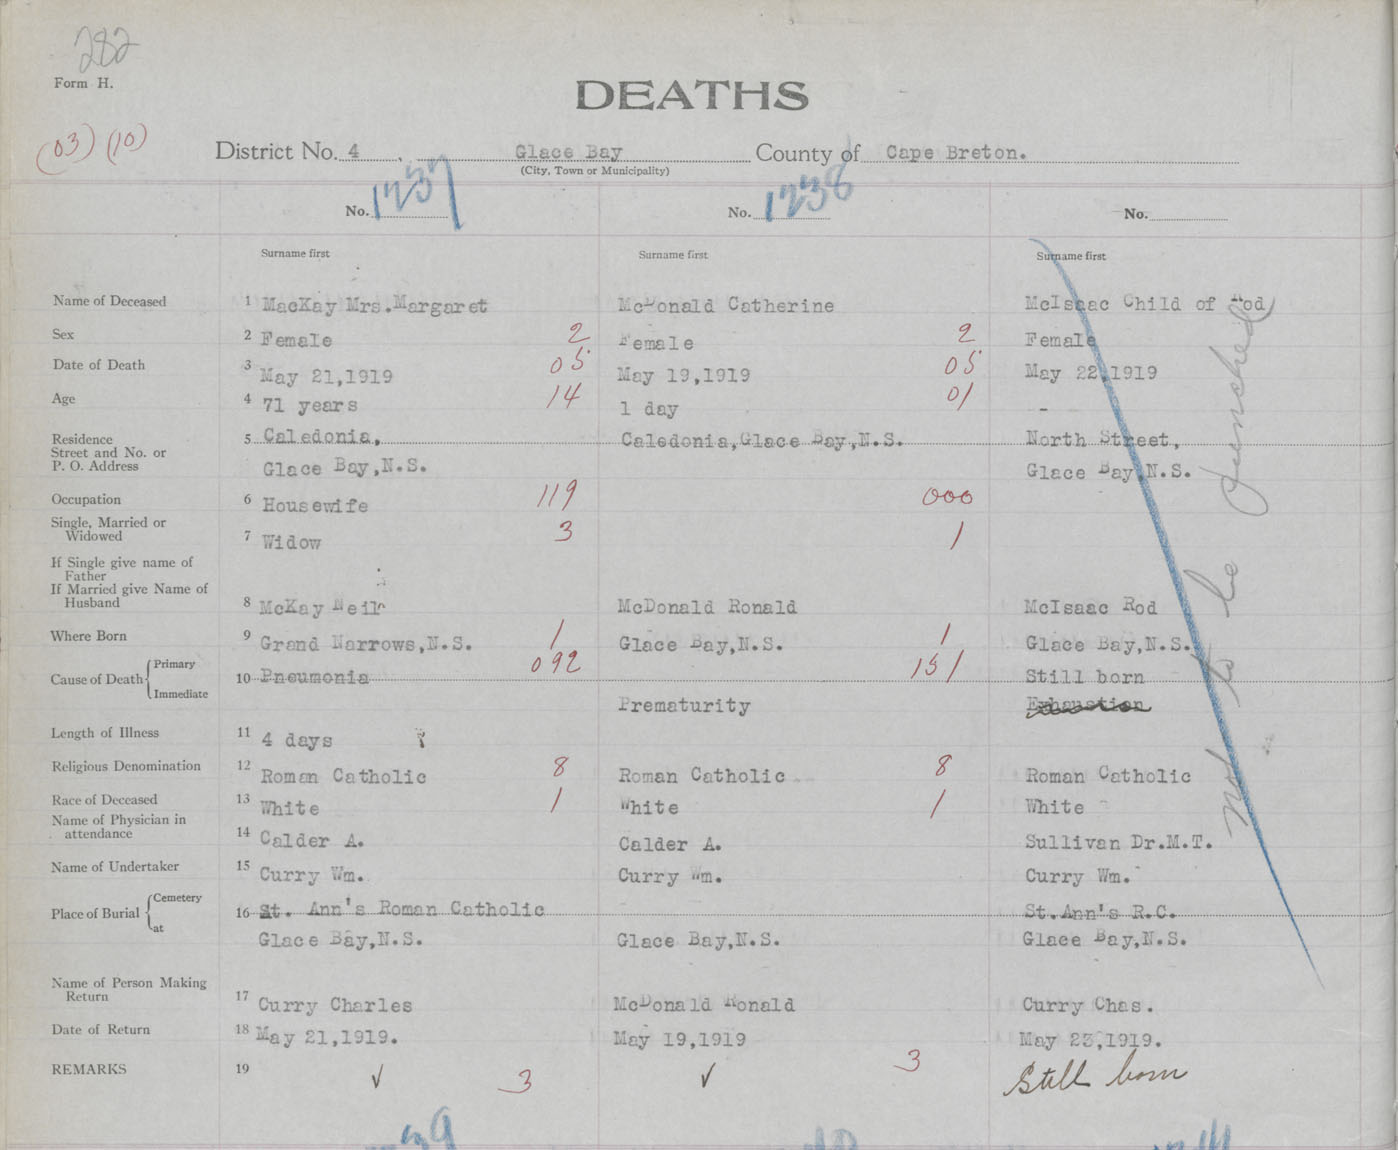 282
Form H.
DEATHS
(03) (10)
District No. 4, Glace Bay County of Cape Breton.
(City, Town or Municipality)
No. 1237 No. 1238 No.
Surname first Surname first Surname first
Name of Deceased 1 MacKay Mrs.Margaret McDonald Catherine McIsaac Child of Rod
Sex 2 Female 2 Female 2 Female
Date of Death 3 May 21,1919 05 May 19,1919 05 May 22,1919
Age 4 71 years 14 1 day 01 -
Residence
Street and No. or
P. O. Address
5 Caledonia, Caledonia,Glace Bay,N.S. North Street,
Glace Bay,N.S. Glace Bay,N.S.
Occupation 6 Housewife 119 000
Single, Married or
Widowed
7 Widow 3 1
If Single give name of
Father
If Married give Name of
Husband
8 McKay Neil McDonald Ronald McIsaac Rod
Where Born 9 Grand Narrows,N.S. 1 Glace Bay,N.S. 1 Glace Bay,N.S.
Cause of Death Primary
Immediate
10 Pneumonia 092 151 Still born
Prematurity Exhaustion
Length of Illness 11 4 days
Religious Denomination 12 Roman Catholic 8 Roman Catholic 8 Roman Catholic
Race of Deceased 13 White 1 White 1 White
Name of Physician in
attendance
14 Calder A. Calder A. Sullivan Dr.M.T.
Name of Undertaker 15 Curry Wm. Curry Wm. Curry Wm.
Place of Burial Cemetery
at
16 St. Ann's Roman Catholic St.Ann's R.C.
Glace Bay,N.S. Glace Bay,N.S. Glace Bay,N.S.
Name of Person Making
Return
17 Curry Charles McDonald Ronald Curry Chas.
Date of Return 18 May 21,1919. May 19,1919 May 23,1919.
REMARKS 19 ✓ 3 ✓ 3 Still born
not to be punched